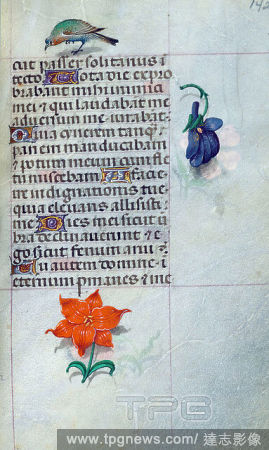 142
cut passer solitarius i
tecto Tota die expro
brabant michi inimici
mei ⁊ qui laudabant me
aduersum me iurabāt
Quia cinerem tanq̄
panem manducabam
⁊ potum meum cum fle
tu miscebam A facie
ire indignationis tue
quia eleuans allisisti
me Dies mei sicut ū
bra declinauerunt ⁊ e
go sicut fenum arui
Tu autem domine i
eternum ꝑmanes ⁊ me
TPG
www.tpgnews.com / 達志影像